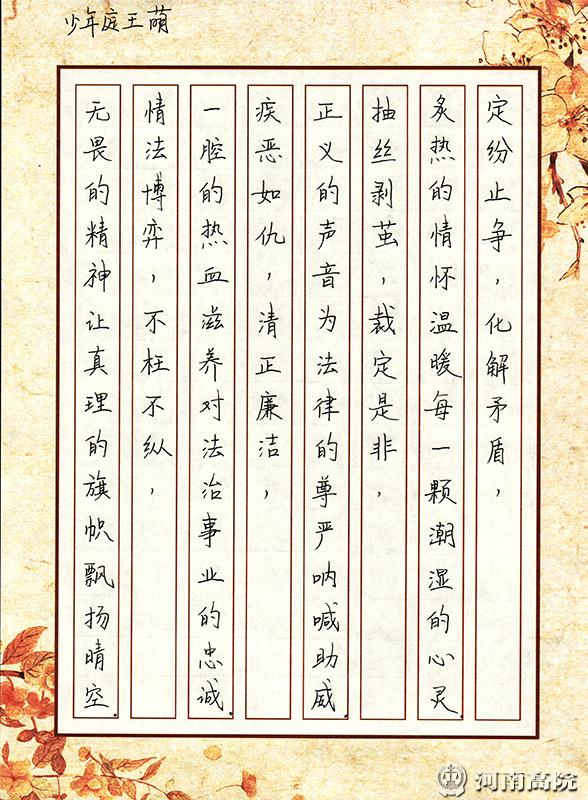 少年庭王萌
定纷止争，化解矛盾，
炙热的情怀温暖每一颗潮湿的心灵。
抽丝剥茧，裁定是非，
正义的声音为法律的尊严呐喊助威。
疾恶如仇，清正廉洁，
一腔的热血滋养对法治事业的忠诚。
情法博弈，不枉不纵，
无畏的精神让真理的旗帜飘扬晴空。
河南高院